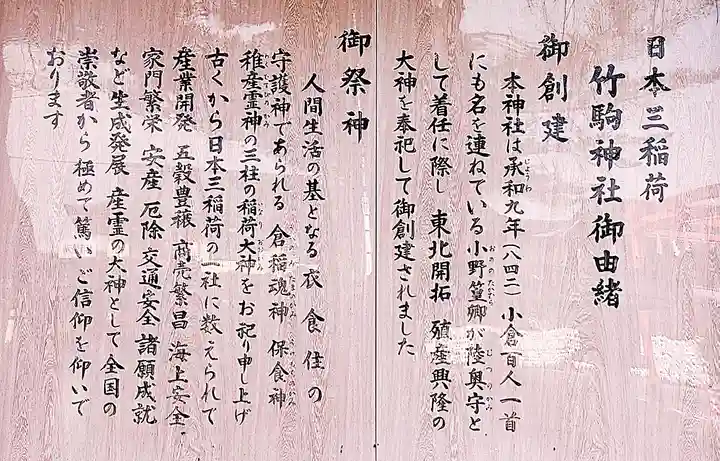 日本三稲荷
竹駒神社御由緒
御創建
本神社は承和九年(八四二)小倉百人一首
にも名を連ねている小野篁卿が陸奥守と
して着任に際し 東北開拓 殖産興隆の
大神を奉祀して御創建されました
御祭神
人間生活の基となる衣食住の
守護神であられる 倉稲魂神 保食神
稚産霊神の三柱の稲荷大神をお祀り申し上げ
古くから日本三稲荷の一社に数えられて
産業開発 五穀豊穣 商売繁昌 海上安全
家門繁栄 安産 厄除 交通安全 諸願成就
など生成発展 産霊の大神として全国の
崇敬者から極めて篤いご信仰を仰いで
おります